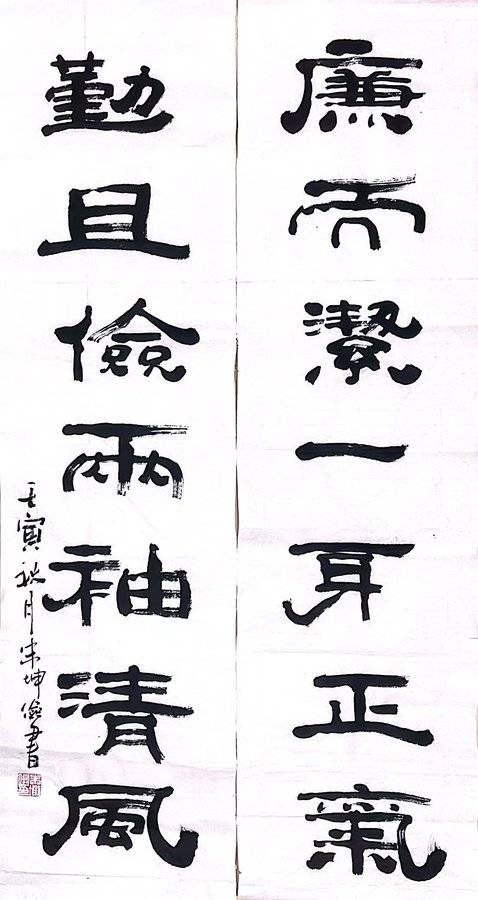 廉而潔一身正氣
勤且儉兩袖清風
壬寅秋月朱坤儉書